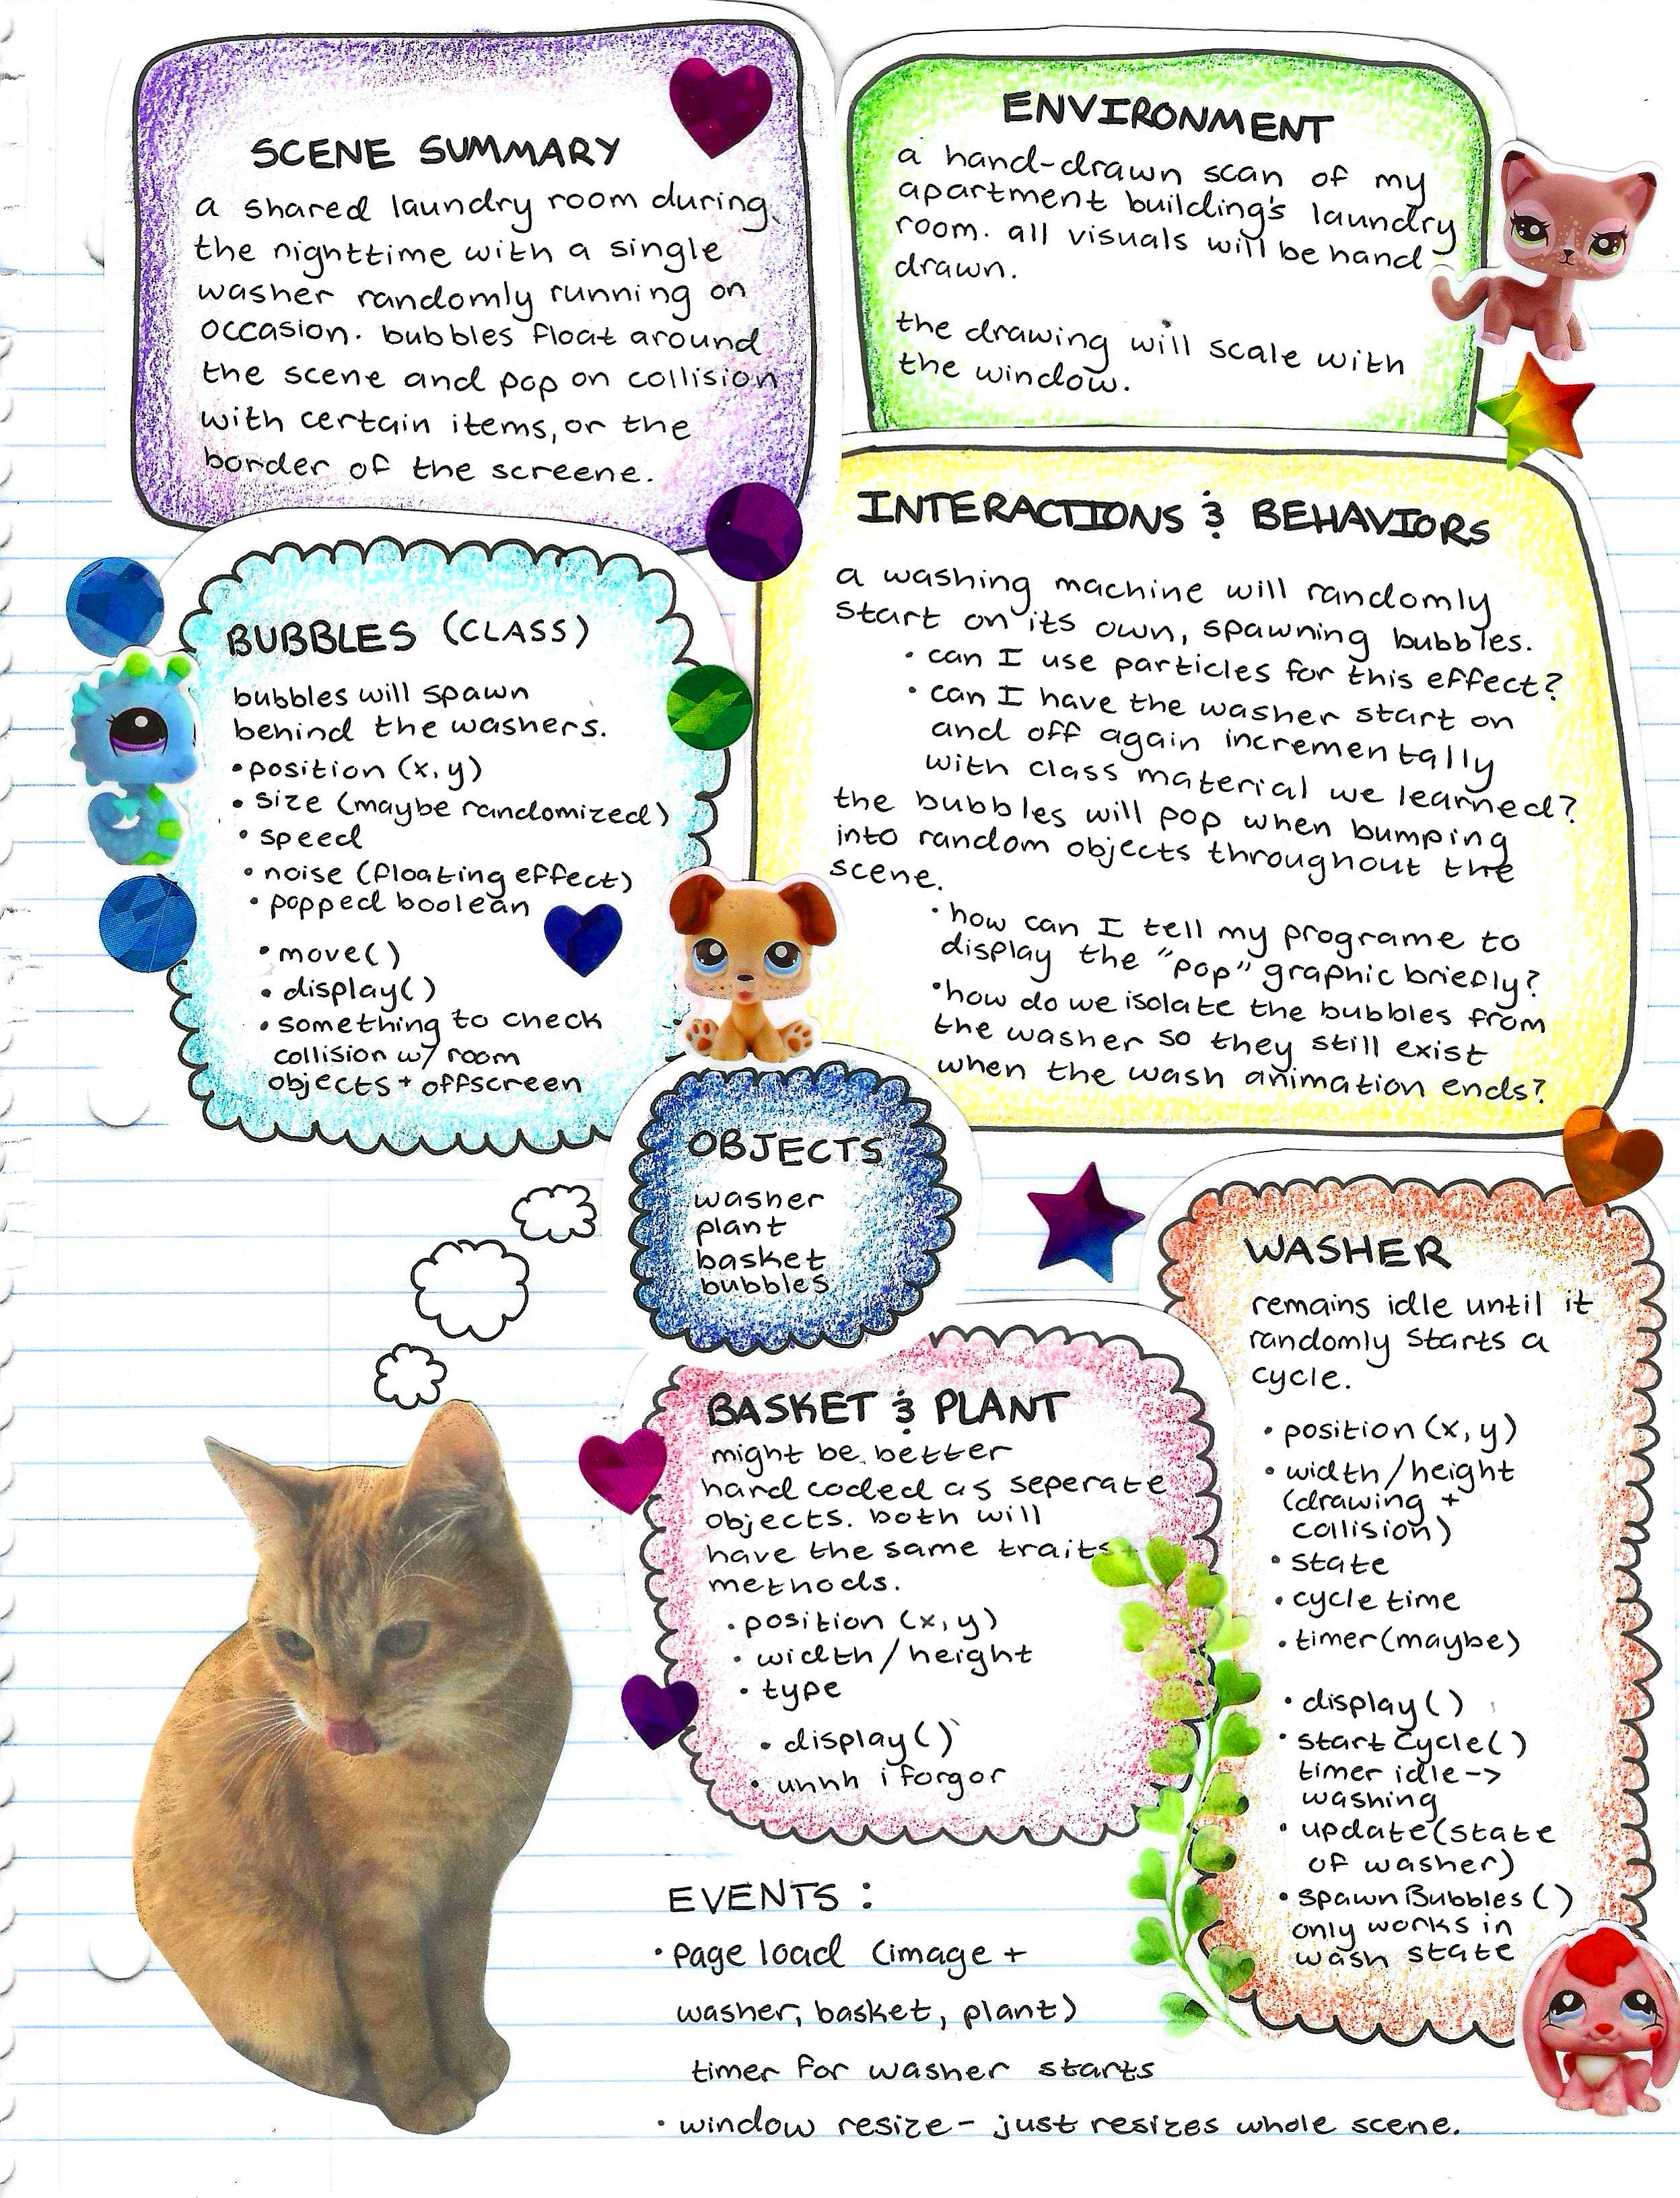 SCENE SUMMARY
a shared laundry room during
the nighttime with a single
washer randomly running on
occasion. bubbles float around
the scene and pop on collision
with certain items, or the
border of the screene.
ENVIRONMENT
a hand-drawn scan of my
apartment building's laundry
room. all visuals will be hand-
drawn.
the drawing will scale with
the window.
INTERACTIONS & BEHAVIORS
a washing machine will randomly
start on its own, spawning bubbles.
• can I use particles for this effect?
• can I have the washer start on
and off again incrementally
with class material we learned?
the bubbles will pop when bumping
into random objects throughout the
scene.
• how can I tell my programe to
display the "pop" graphic briefly?
• how do we isolate the bubbles from
the washer so they still exist
when the wash animation ends?
BUBBLES (CLASS)
bubbles will spawn
behind the washers.
• position (x, y)
• size (maybe randomized)
• speed
• noise (floating effect)
• popped boolean
• move()
• display()
• something to check
collision w/ room
objects + offscreen
OBJECTS
washer
plant
basket
bubbles
BASKET & PLANT
might be better
hard coded as seperate
objects. both will
have the same traits +
methods.
• position (x, y)
• width/height
• type
• display()
• unnh i forgor
WASHER
remains idle until it
randomly starts a
cycle.
• position (x, y)
• width/height
(drawing +
collision)
• state
• cycle time
• timer (maybe)
• display()
• start Cycle()
timer idle ->
washing
• update(state
of washer)
• spawnBubbles()
only works in
wash state
EVENTS:
• page load (image +
washer, basket, plant)
timer for washer starts
• window resize - just resizes whole scene.